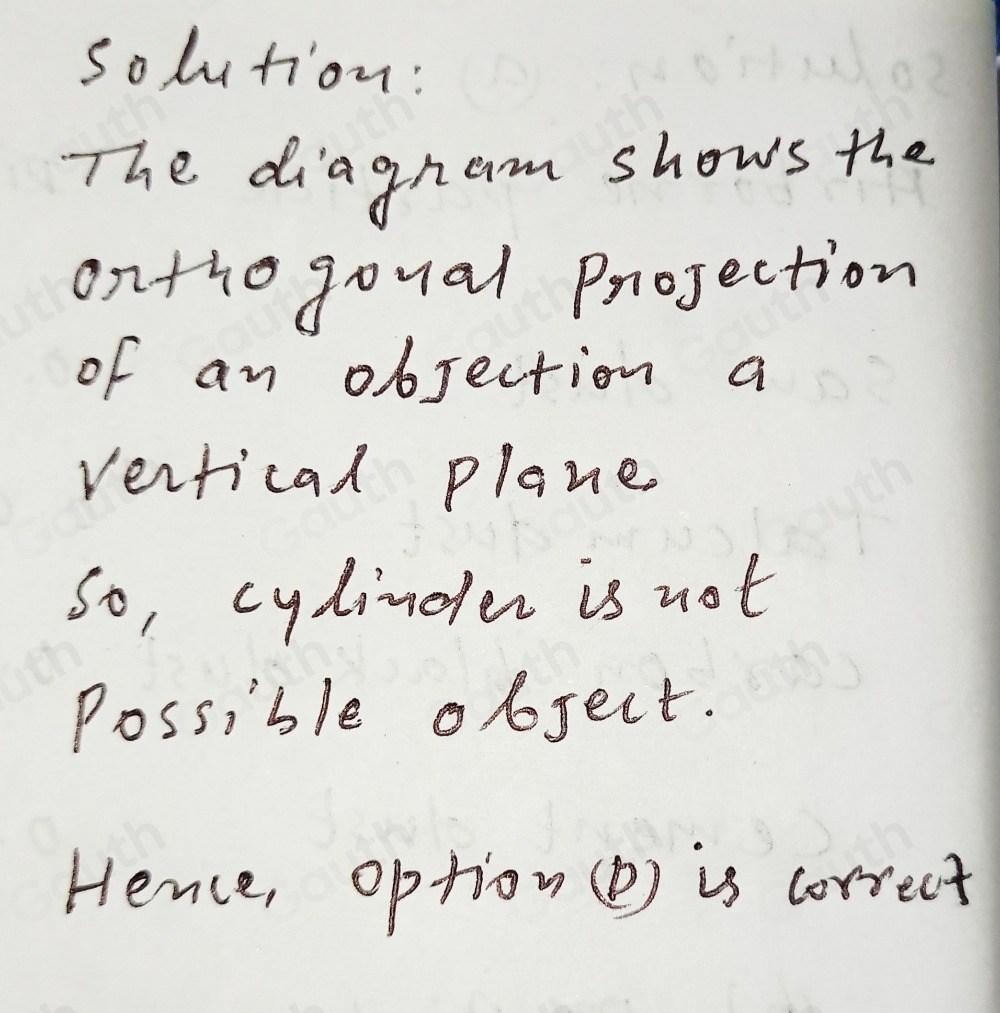 Solution:
The diagram shows the
orthogonal projection
of an objection a
vertical plane
So, cylinder is not
Possible object.
Hence, option (D) is correct